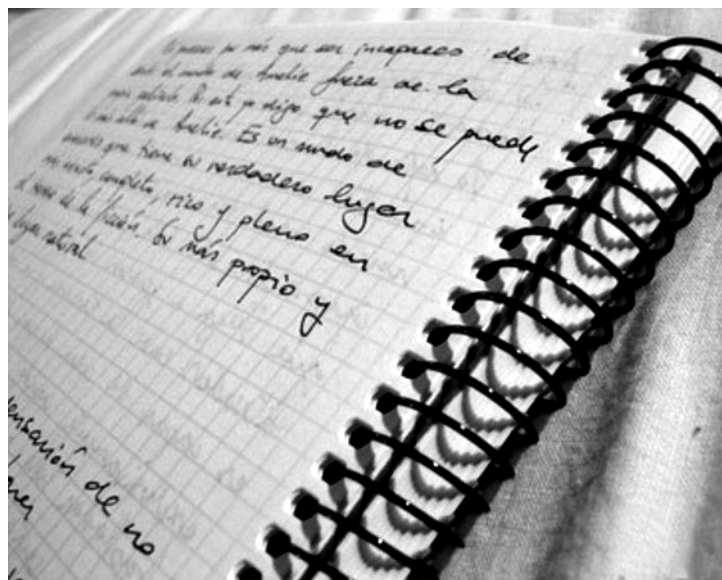 más que ser incapaces de
el mundo de Amelie fuera de la
yo digo que no se puede
de Amelie. Es un mundo de
que tiene su verdadero lugar
completo, rico y pleno en
de la ficción. Su más propio y
lugar natural
sensación de no